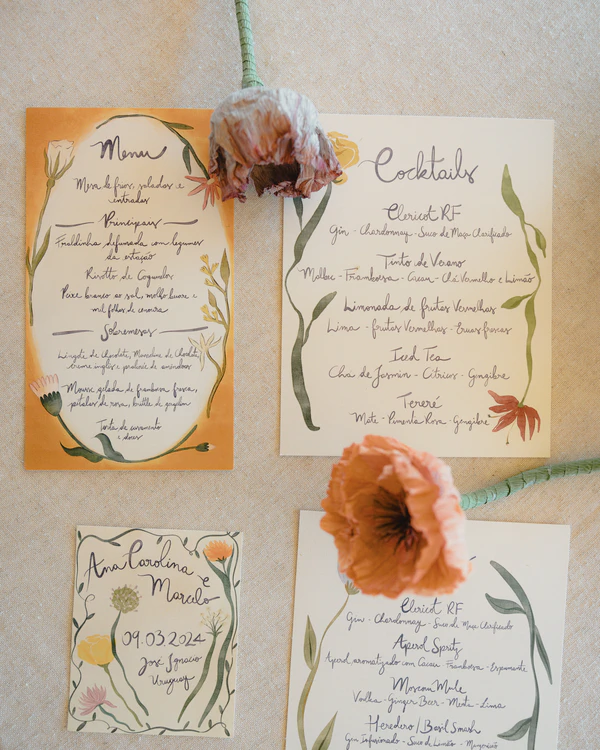 Menu
Mesa de frios, saladas e
entradas
Principais
Fraldinha defumada com legumes
da estação
Risotto de Cogumelos
Peixe branco ao sal, molho beurre e
mil folhas de cenoura
Sobremesas
de Chocolate, de Chocolate
creme inglês e praliné de amêndoas
Mousse gelada de framboesa fresca,
pétalas de rosa,
Torta de casamento
e doces
Cocktails
Clericot RF
Gin - Chardonnay - Suco de Maçã Clarificado
Tinto de Verano
Malbec - Framboesa - Cacau - Chá Vermelho e Limão
Limonada de frutas Vermelhas
Lima - frutas Vermelhas - Ervas frescas
Iced Tea
Cha de Jasmin - Citricos - Gengibre
Tereré
Mate - Pimenta Rosa - Gengibre
Ana Carolina e
Marcelo
09.03.2024
José Ignacio
Uruguay
Clericot RF
Gin - Chardonnay - Suco de Maçã Clarificado
Aperol Spritz
Aperol aromatizado com Cacau Framboesa - Espumante
Moscow Mule
Vodka - Ginger Beer - Menta - Lima
Heredero / Basil Smash
Gin Infusionado - Suco de Limão -